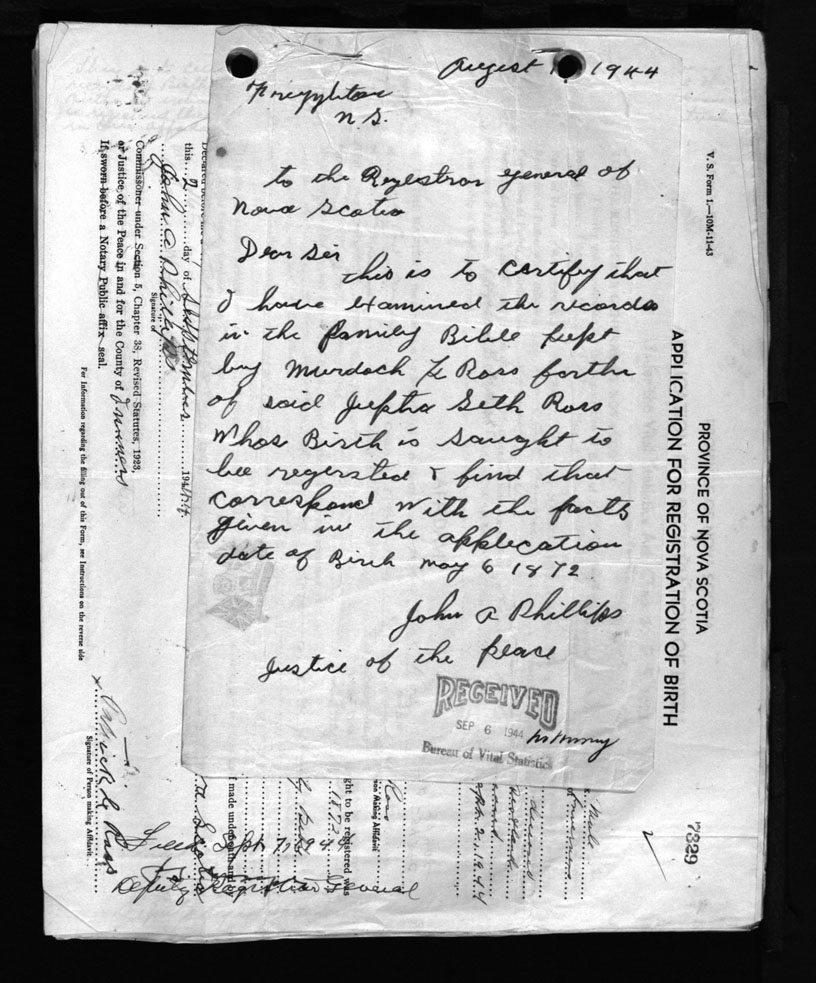 August 1 1944
N.S.
to the Regestrar general of
Nova Scotia
Dear Sir
this is to certify that
I have examined the records
in the family Bible kept
by Murdoch Ross
of said Jeptha Seth Ross
Whos Birth is saught to
bee regersted & find that
correspond with the facts
given in the applecation
date of Birth may 6 1872
John A Phillips
justice of the peace
RECEIVED
SEP 6 1944
Bureau of Vital Statistics
V. S. Form 1.—10M-11-43
PROVINCE OF NOVA SCOTIA
APPLICATION FOR REGISTRATION OF BIRTH
7329
Male
Sept. 2, 1944
Ross
son Making Affidavit
ght to be registered was
1872
f made under oath and
this 2 day of September 194
John A Phillips
Signature of
Commissioner under Section 5, Chapter 38, Revised Statutes, 1923,
or Justice of the Peace in and for the County of Inverness
If sworn before a Notary Public affix seal.
For Information regarding the filling out of this Form, see Instructions on the reverse side
x Ross
Signature of Person making Affidavit
Filed Sept 7, 1944
Deputy Registrar General